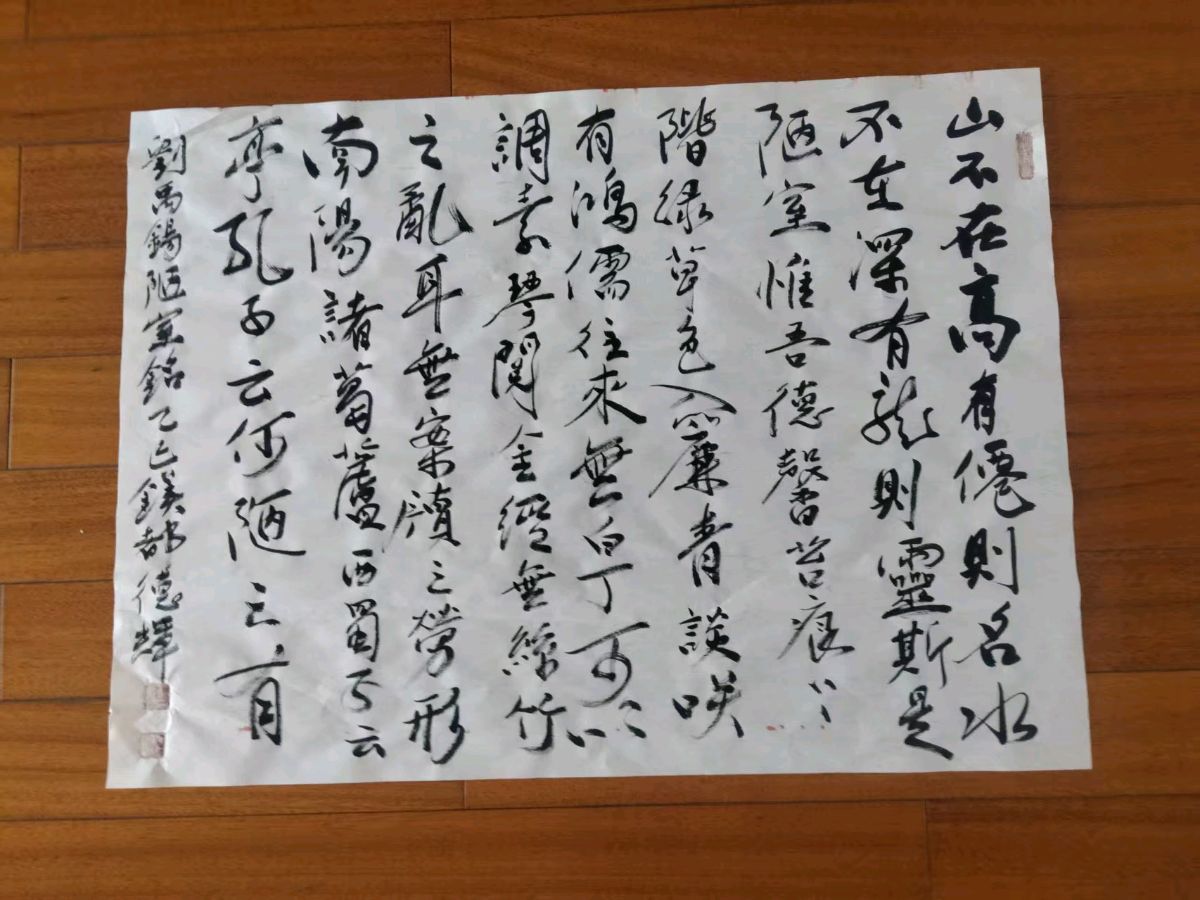 山不在高有僊則名水
不在深有龍則靈斯是
陋室惟吾德馨苔痕上
階緑草色入簾青談咲
有鴻儒往來無白丁可以
調素琴閲金經無絲竹
之亂耳無案牘之勞形
南陽諸葛廬西蜀子云
亭孔子云何陋之有
劉禹錫陋室銘乙巳鎂都德輝